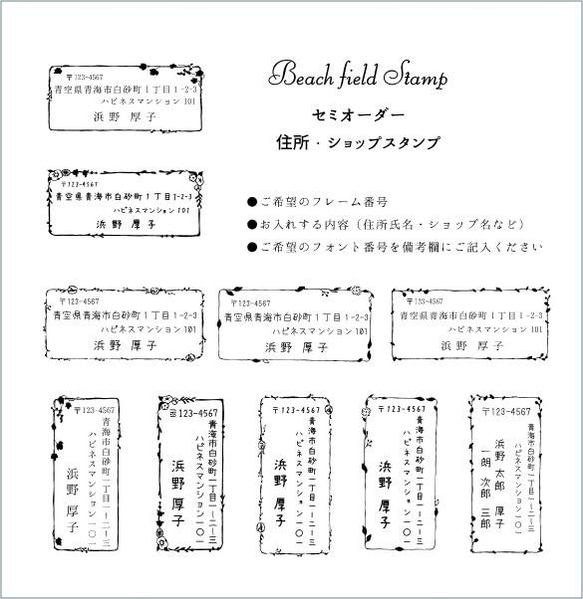 Beach field Stamp
セミオーダー
住所・ショップスタンプ
●ご希望のフレーム番号
●お入れする内容（住所氏名・ショップ名など）
●ご希望のフォント番号を備考欄にご記入ください
〒123-4567
青空県青海市白砂町1丁目1-2-3
ハピネスマンション101
浜野 厚子
〒123-4567
青空県青海市白砂町1丁目1-2-3
ハピネスマンション101
浜野 厚子
〒123-4567
青空県青海市白砂町1丁目1-2-3
ハピネスマンション101
浜野 厚子
〒123-4567
青空県青海市白砂町1丁目1-2-3
ハピネスマンション101
浜野 厚子
〒123-4567
青空県青海市白砂町1丁目1-2-3
ハピネスマンション101
浜野 厚子
〒123-4567
青海市白砂町一丁目一ー二ー三
ハピネスマンション一〇一
浜野 厚子
〒123-4567
青海市白砂町一丁目一ー二ー三
ハピネスマンション一〇一
浜野 厚子
〒123-4567
青海市白砂町一丁目一ー二ー三
ハピネスマンション一〇一
浜野 厚子
〒123-4567
青海市白砂町一丁目一ー二ー三
ハピネスマンション一〇一
浜野 厚子
〒123-4567
青海市白砂町一丁目一ー二ー三
ハピネスマンション一〇一
浜野 太郎 厚子
一朗 次郎 三郎